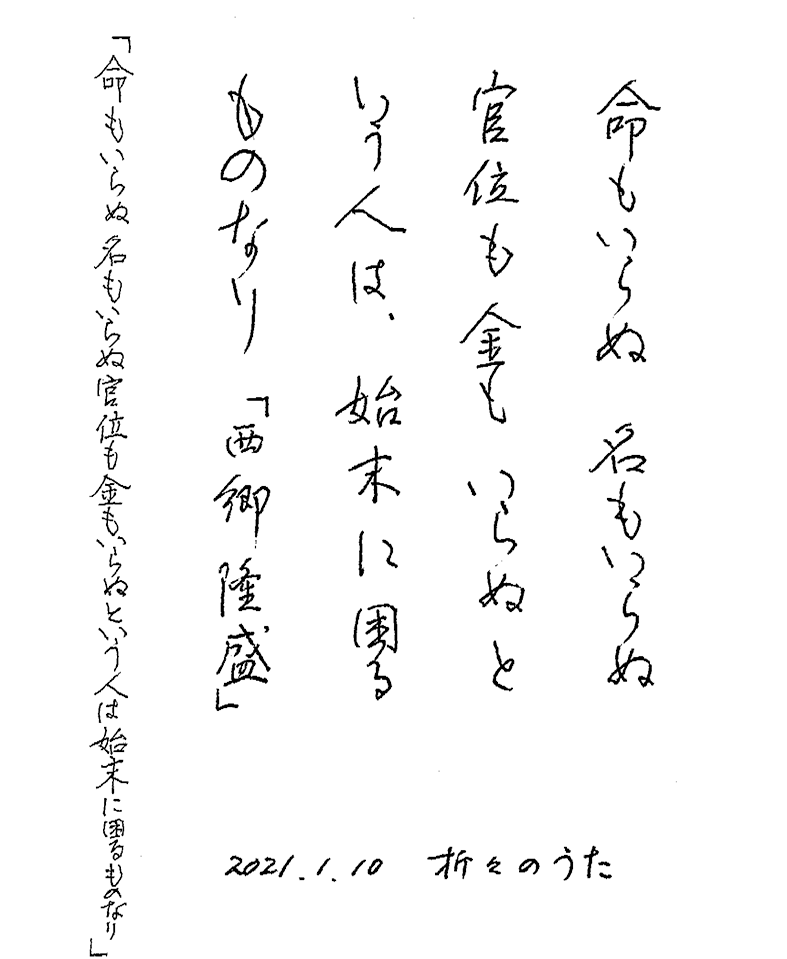 命もいらぬ 名もいらぬ
官位も 金も いらぬと
いう人は、始末に困る
ものなり「西郷隆盛」
「命もいらぬ 名もいらぬ官位も金もいらぬという人は始末に困るものなり」
2021.1.10 折々のうた